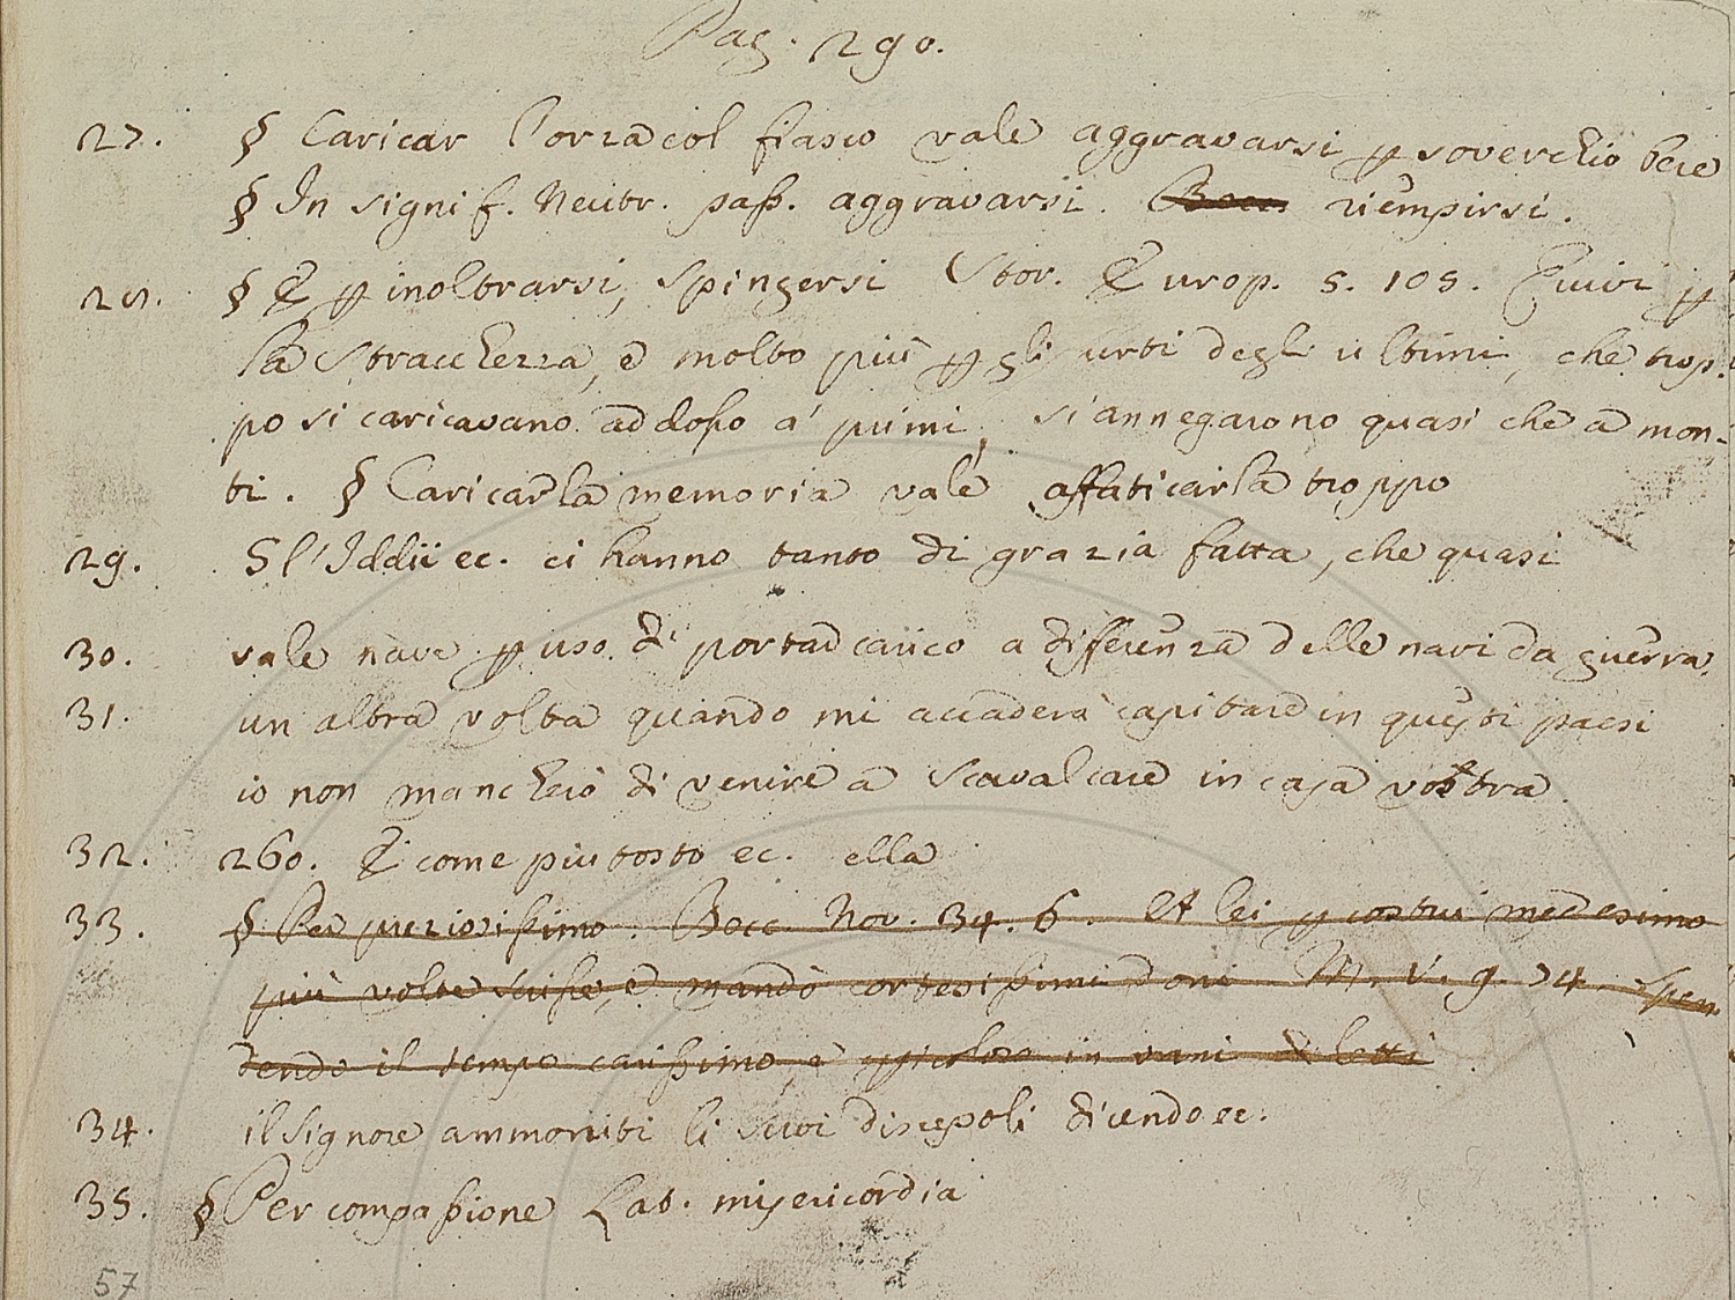 Pag. 290.
27. § Caricar l'orza col fiasco vale aggravarsi ꝑ soverchio bere
§ In signif. Neutr. pass. aggravarsi. riempirsi.
28. § E ꝑ inoltrarsi, spingersi Stor. Europ. 5. 105. Quivi ꝑ
la Stracchezza, e molto più ꝑ gli urti degli ultimi, che trop-
po si caricavano addosso a' primi, si annegarono quasi che a mon-
ti. § Caricar la memoria vale affaticarla troppo
29. Gl'Iddii ec. ci hanno tanto di grazia fatta, che quasi
30. vale nave ꝑ uso di portar carico a differenza delle navi da guerra.
31. un altra volta quando mi accaderà capitare in questi paesi
io non mancherò di venire a Scavalcare in casa vostra.
32. 260. E come piu tosto ec. ella
33. § Per preziosissimo. Bocc. Nov. 34. 6. Et a lei ꝑ costui medesimo
più volte scrisse, e mandò cortesissimi doni M. V. 9. 74. Spen
dendo il tempo carissimo, e in vani diletti.
34. il Signore ammoniti li suoi discepoli dicendo ec.
35. § Per compassione Lat. misericordia
57